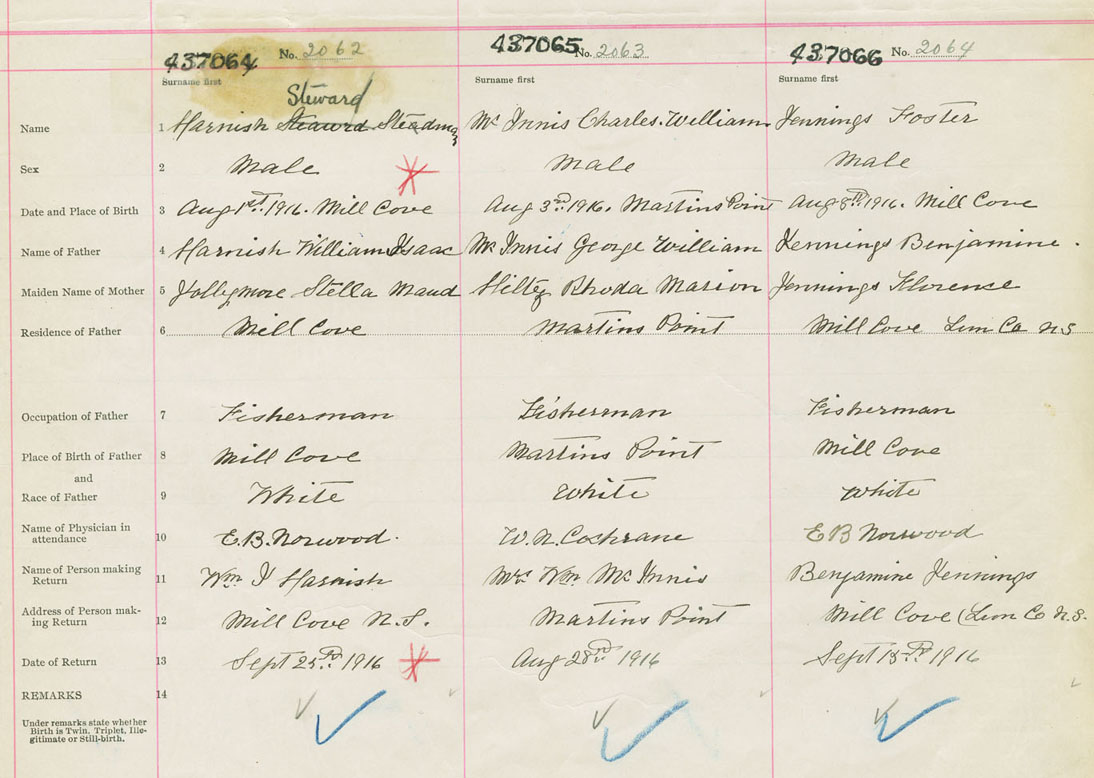 437064 No. 2062 437065 No. 2063 437066 No. 2064
Surname first Surname first Surname first
Steward
Name 1 Harnish Steawrd Steadman Mc Innis Charles. William Jennings Foster
Sex 2 Male Male Male
Date and Place of Birth 3 Aug 1st. 1916. Mill Cove Aug 3rd. 1916. Martins Point Aug 8th. 1916. Mill Cove
Name of Father 4 Harnish William Isaac Mc Innis George William Jennings Benjamine.
Maiden Name of Mother 5 Jollymore Stella Maud Hiltz Rhoda Marion Jennings Florence
Residence of Father 6 Mill Cove Martins Point Mill Cove Lun Co N S
Occupation of Father 7 Fisherman Fisherman Fisherman
Place of Birth of Father 8 Mill Cove Martins Point Mill Cove
and
Race of Father 9 White White White
Name of Physician in
attendance 10 E. B. Norwood. W. N. Cochrane E B Norwood
Name of Person making
Return 11 Wm I Harnish Mrs Wm Mc Innis Benjamine Jennings
Address of Person mak-
ing Return 12 Mill Cove N. S. Martins Point Mill Cove (Lun Co N. S.
Date of Return 13 Sept 25 1916 Aug 28 1916 Sept 1916
REMARKS 14
Under remarks state whether
Birth is Twin. Triplet, Ille-
gitimate or Still-birth.